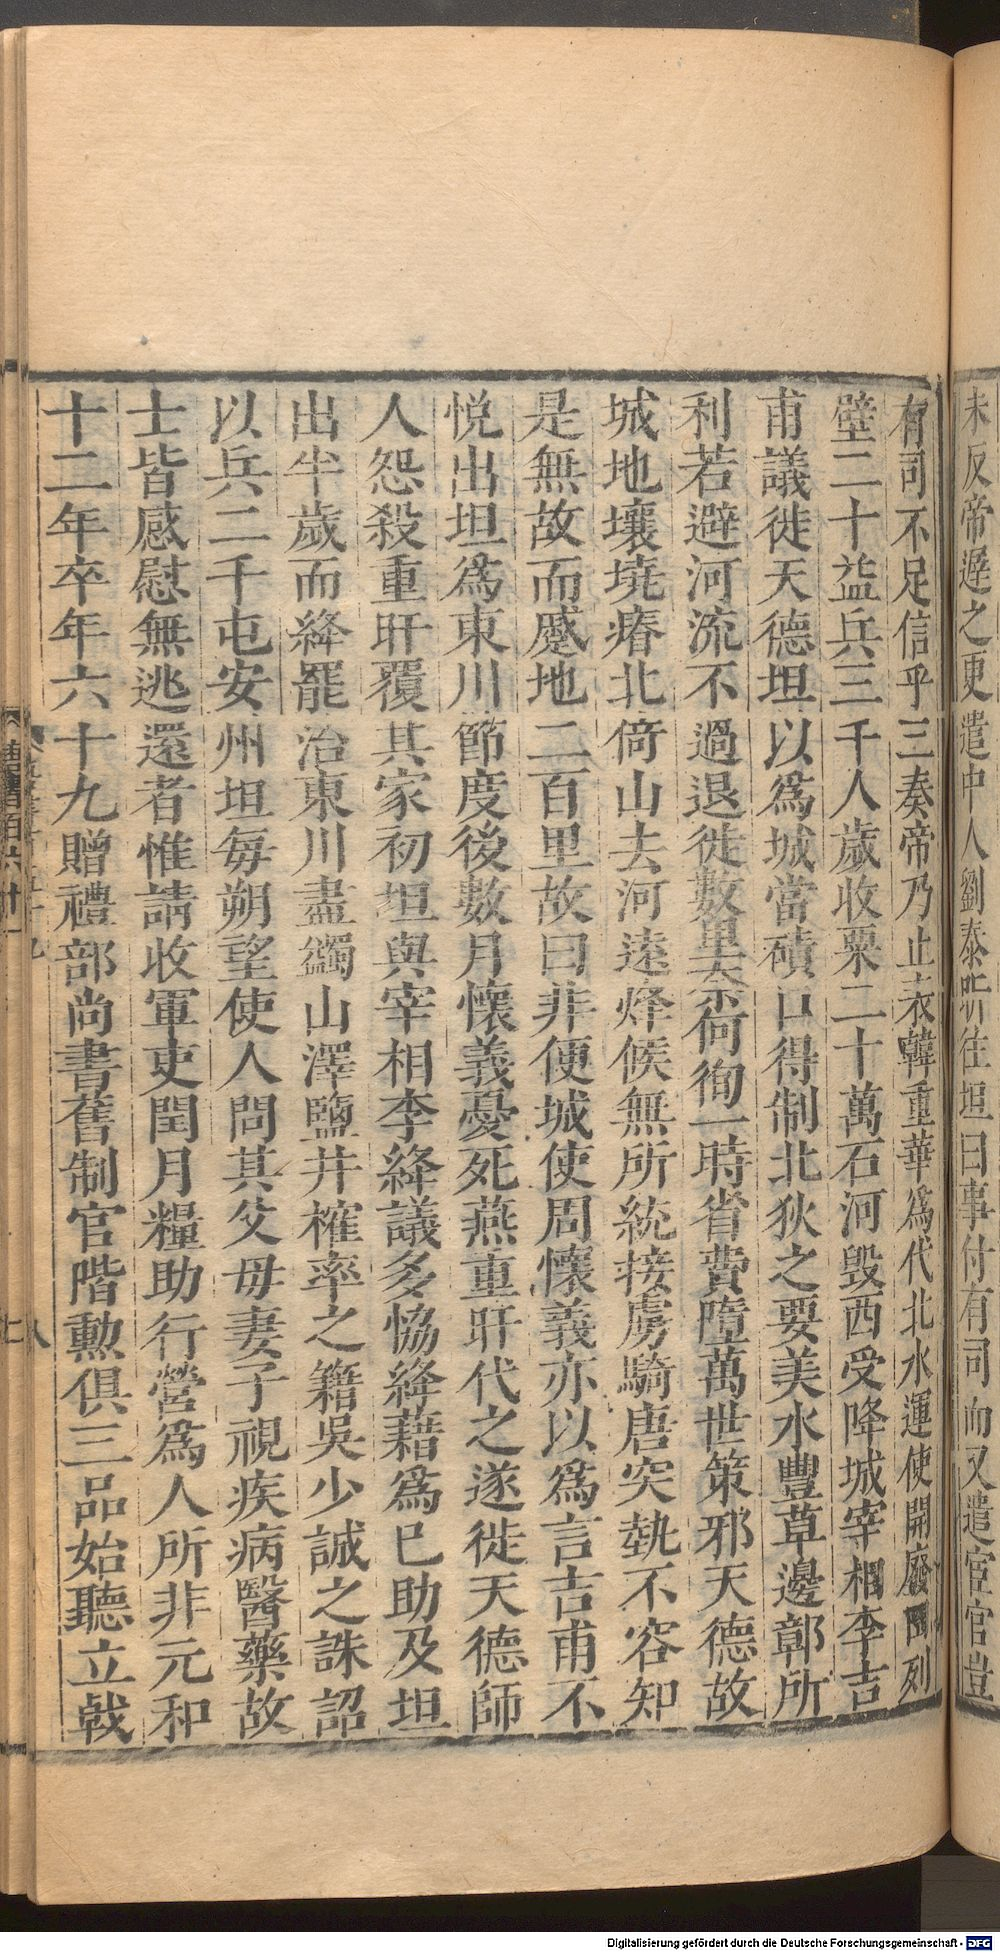 未反帝遲之更遣中人劉泰昕往坦曰事付有司而又遣宦官豈
有司不足信乎三奏帝乃止表韓重華爲代北水運使開廢田列
壁二十益兵三千人歲收粟二十萬石河毀西受降城宰相李吉
甫議徙天德坦以爲城當磧口得制北狄之要美水豐草邊鄣所
利若避河流不過退徙數里柰何徇一時省費墮萬世策邪天德故
城地壤墝瘠北倚山去河遠烽候無所統接虜騎唐突埶不容知
是無故而蹙地二百里故曰非便城使周懷義亦以爲言吉甫不
悅出坦爲東川節度後數月懷義憂死燕重旰代之遂徙天德師
人怨殺重旰覆其家初坦與宰相李絳議多協絳藉爲已助及坦
出半歲而絳罷治東川盡蠲山澤鹽井榷率之籍吳少誠之誅詔
以兵二千屯安州坦每朔望使人問其父母妻子視疾病醫藥故
士皆感慰無逃還者惟請收軍吏閏月糧助行營爲人所非元和
十二年卒年六十九贈禮部尚書舊制官階勳俱三品始聽立戟
八
Digitalisierung gefördert durch die Deutsche Forschungsgemeinschaft - DFG